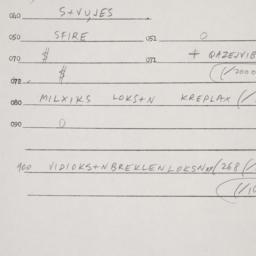 040 S+VUJES
050 SFIRE 051 0
070 $ 071 + QAZEJVIB
072 $ (1/2000
080 MILXIKS LOKS+N KREPLAX (/
090 0
400 VIDIOKS+N BREKLEN LOKSN